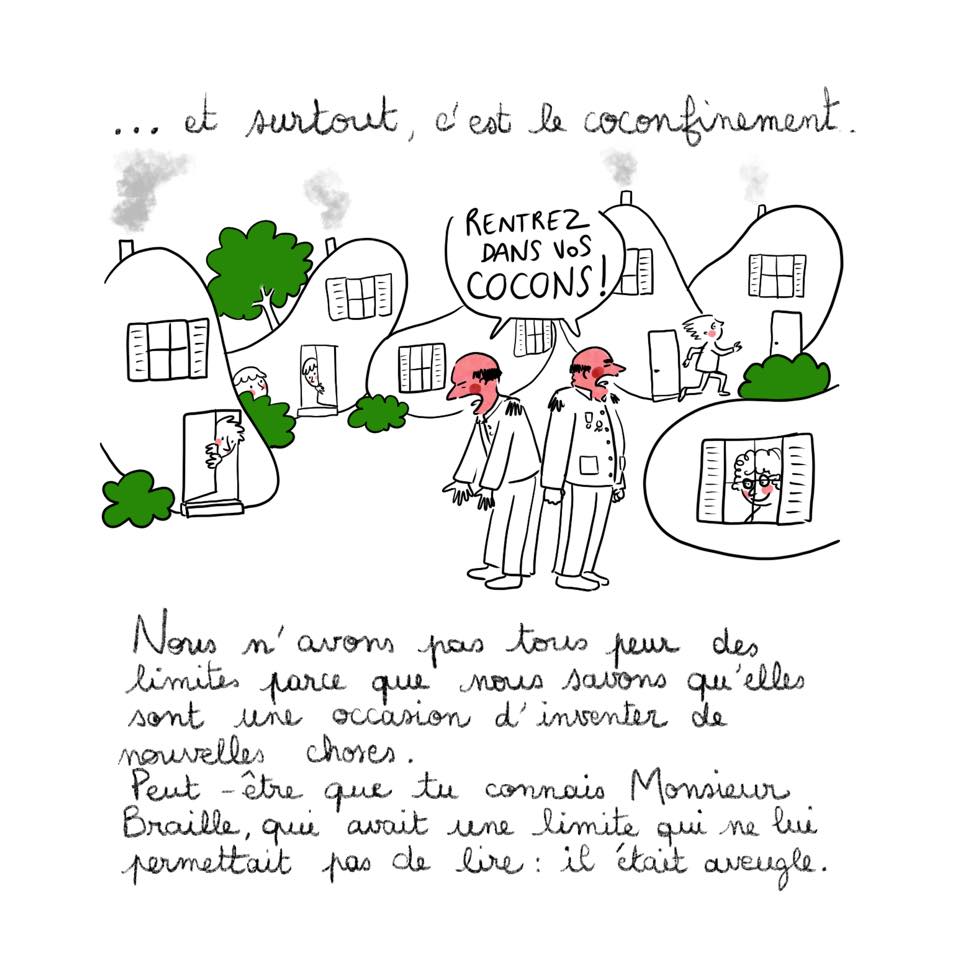 ... et surtout, c'est le coconfinement.
RENTREZ
DANS VOS
COCONS!
Nous n'avons pas tous peur des
limites parce que nous savons qu'elles
sont une occasion d'inventer de
nouvelles choses.
Peut-être que tu connais Monsieur
Braille, qui avait une limite qui ne lui
permettait pas de lire : il était aveugle.